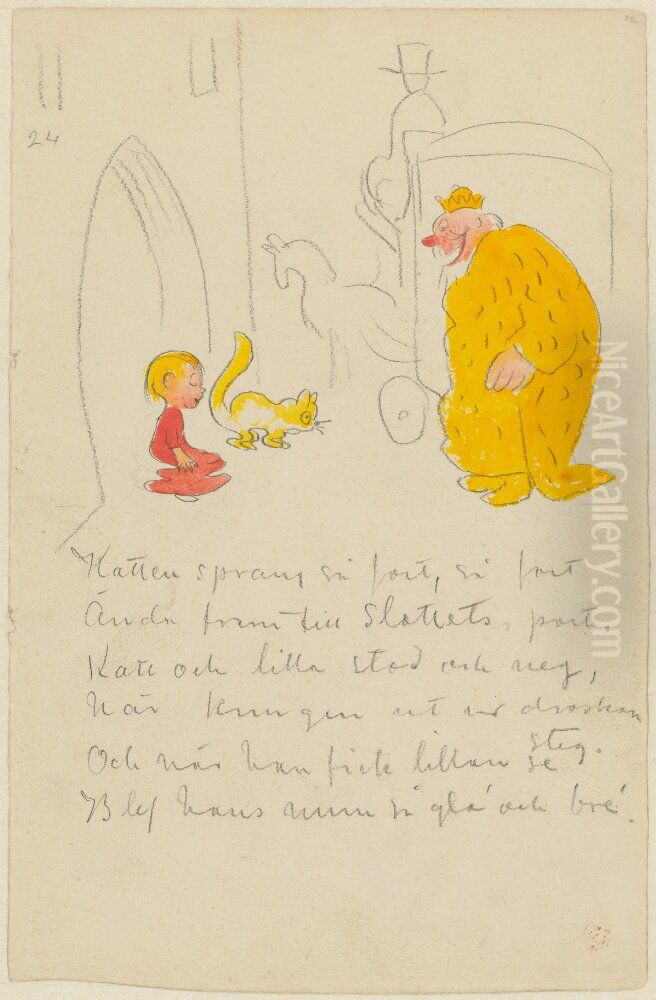 12
24
Katten sprang så fort, så fort
Ända fram till Slottets port.
Katt och lilla stod och neg,
När kungen ut ur droskan
steg.
Och när han fick lillan se
Blef hans mun så gla' och bre'.
NiceArtGallery.com